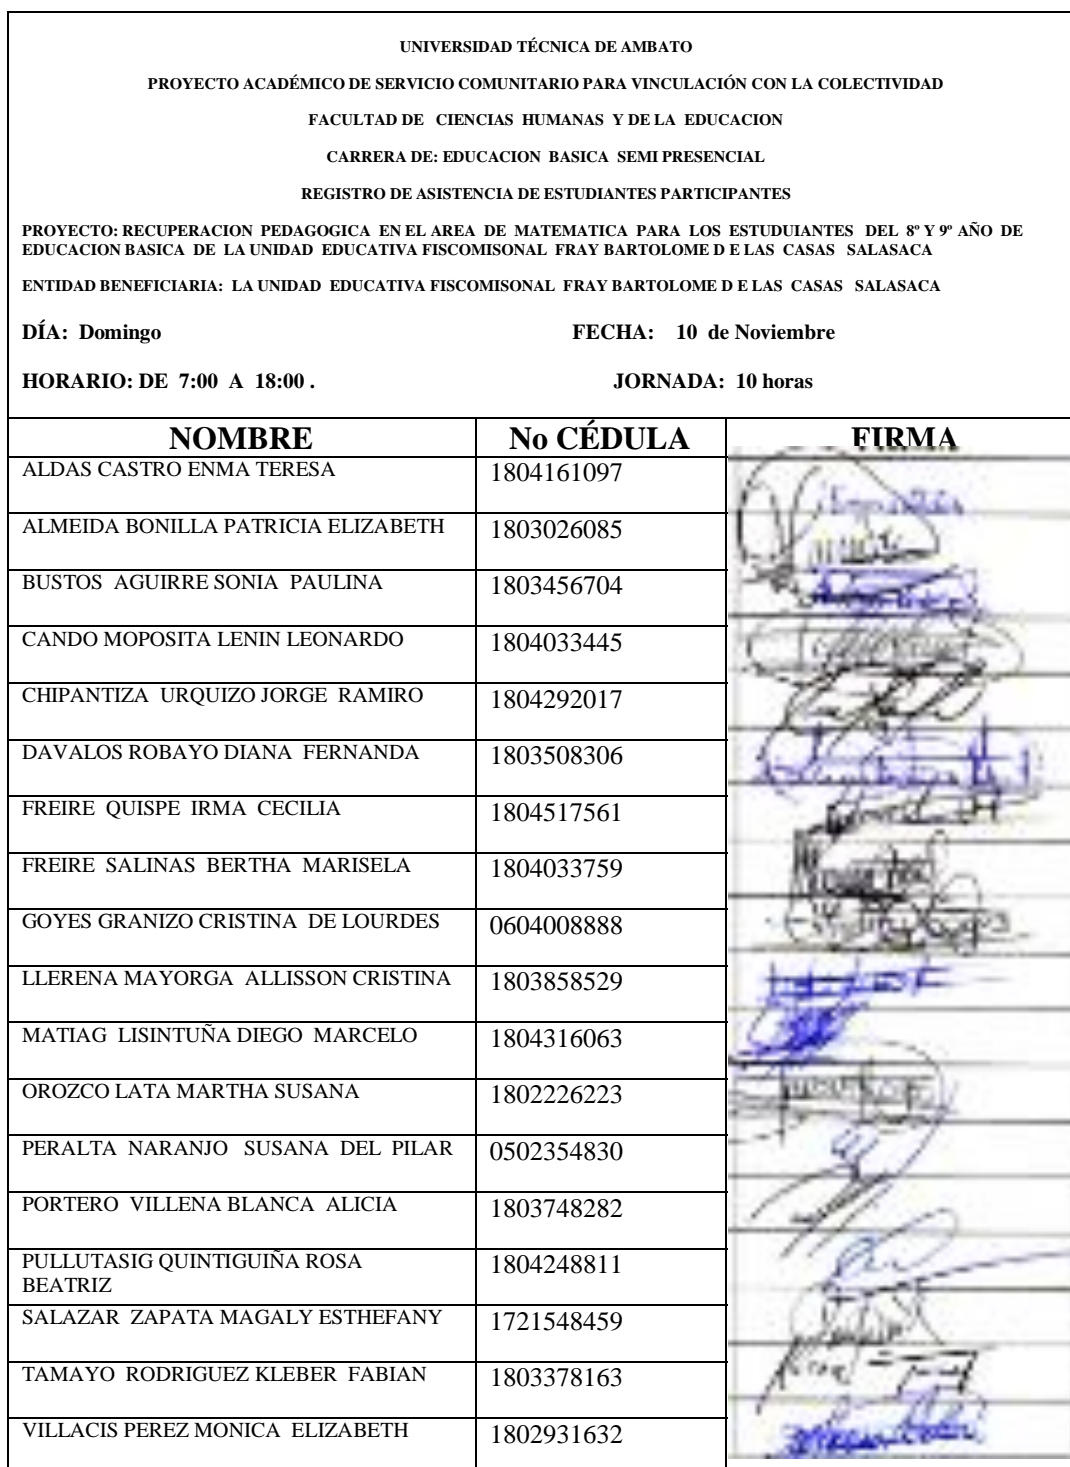 UNIVERSIDAD TÉCNICA DE AMBATO
PROYECTO ACADÉMICO DE SERVICIO COMUNITARIO PARA VINCULACIÓN CON LA COLECTIVIDAD
FACULTAD DE CIENCIAS HUMANAS Y DE LA EDUCACION
CARRERA DE: EDUCACION BASICA SEMI PRESENCIAL
REGISTRO DE ASISTENCIA DE ESTUDIANTES PARTICIPANTES
PROYECTO: RECUPERACION PEDAGOGICA EN EL AREA DE MATEMATICA PARA LOS ESTUDUIANTES DEL 8º Y 9º AÑO DE
EDUCACION BASICA DE LA UNIDAD EDUCATIVA FISCOMISONAL FRAY BARTOLOME D E LAS CASAS SALASACA
ENTIDAD BENEFICIARIA: LA UNIDAD EDUCATIVA FISCOMISONAL FRAY BARTOLOME D E LAS CASAS SALASACA
DÍA: Domingo FECHA: 10 de Noviembre
HORARIO: DE 7:00 A 18:00 . JORNADA: 10 horas
NOMBRE No CÉDULA FIRMA
ALDAS CASTRO ENMA TERESA 1804161097
ALMEIDA BONILLA PATRICIA ELIZABETH 1803026085
BUSTOS AGUIRRE SONIA PAULINA 1803456704
CANDO MOPOSITA LENIN LEONARDO 1804033445
CHIPANTIZA URQUIZO JORGE RAMIRO 1804292017
DAVALOS ROBAYO DIANA FERNANDA 1803508306
FREIRE QUISPE IRMA CECILIA 1804517561
FREIRE SALINAS BERTHA MARISELA 1804033759
GOYES GRANIZO CRISTINA DE LOURDES 0604008888
LLERENA MAYORGA ALLISSON CRISTINA 1803858529
MATIAG LISINTUÑA DIEGO MARCELO 1804316063
OROZCO LATA MARTHA SUSANA 1802226223
PERALTA NARANJO SUSANA DEL PILAR 0502354830
PORTERO VILLENA BLANCA ALICIA 1803748282
PULLUTASIG QUINTIGUIÑA ROSA
BEATRIZ 1804248811
SALAZAR ZAPATA MAGALY ESTHEFANY 1721548459
TAMAYO RODRIGUEZ KLEBER FABIAN 1803378163
VILLACIS PEREZ MONICA ELIZABETH 1802931632